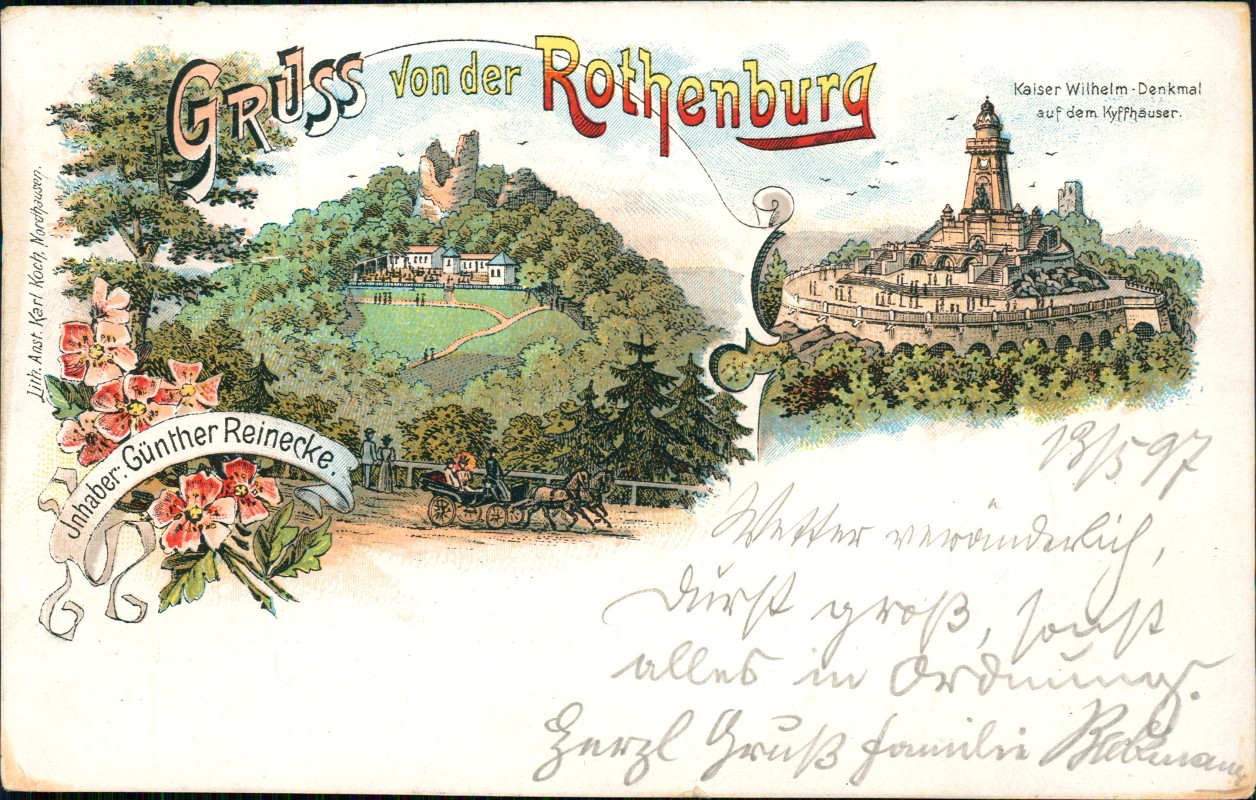 Gruss von der Rothenburg
Kaiser Wilhelm-Denkmal
auf dem Kyffhäuser.
Lith. Anst. Karl Koch, Nordhausen.
Inhaber: Günther Reinecke.
13/5 97
Wetter veränderlich,
Durst groß, sonst
alles in Ordnung.
Herzl Gruß Familie